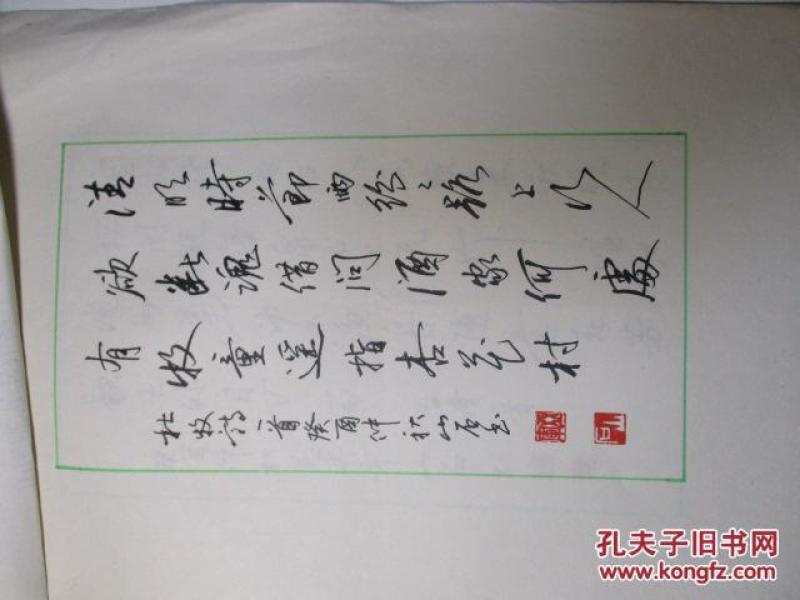 清明時節雨紛々路上行人
欲斷魂借问酒家何處
有牧童遥指杏花村
杜牧诗一首癸酉仲秋山石书
孔夫子旧书网
www.kongfz.com